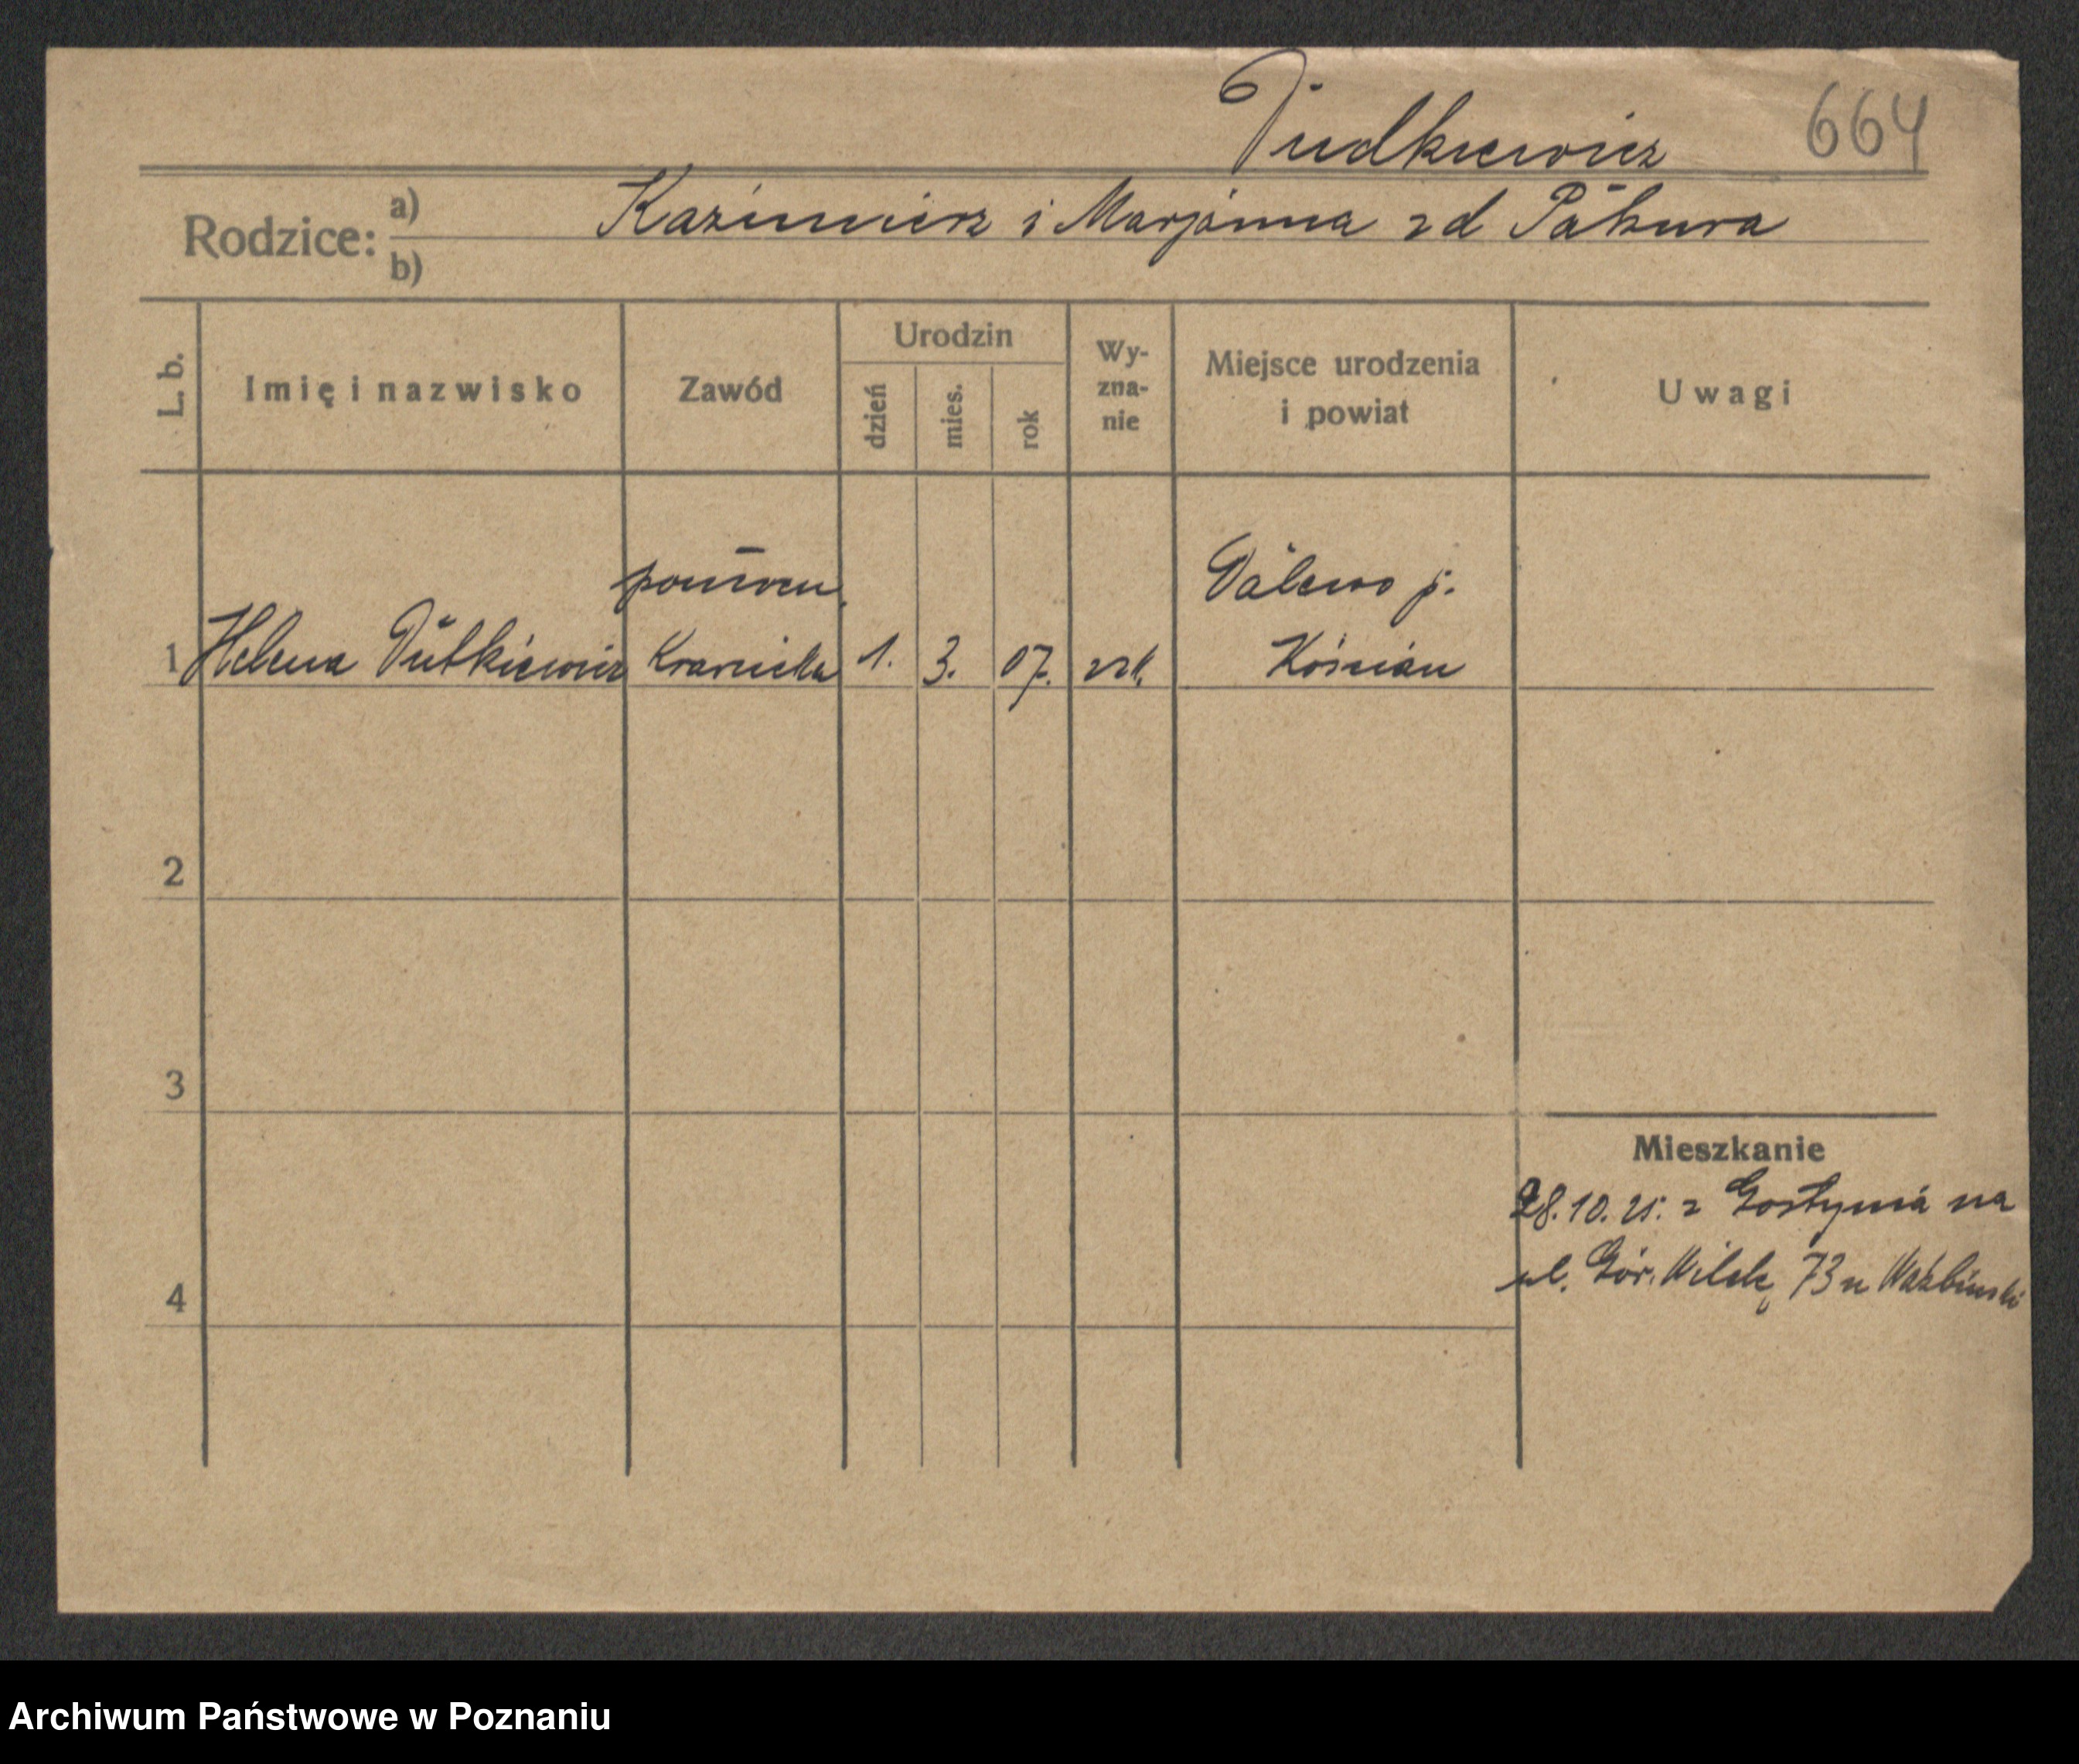 Dudkiewicz 664
Rodzice: a) Kazimierz i Marjanna zd Pakura
b)
L. b. Imię i nazwisko Zawód Urodzin dzień mies. rok Wy-zna-nie Miejsce urodzenia i powiat Uwagi
pomocn. Dalewo p.
1 Helena Dutkiewicz Krawiecka 1. 3. 07. rzk. Kościan
2
3
Mieszkanie
28.10.25. z Gostynia na
ul. Gór. Wildę 73 u
4
Archiwum Państwowe w Poznaniu